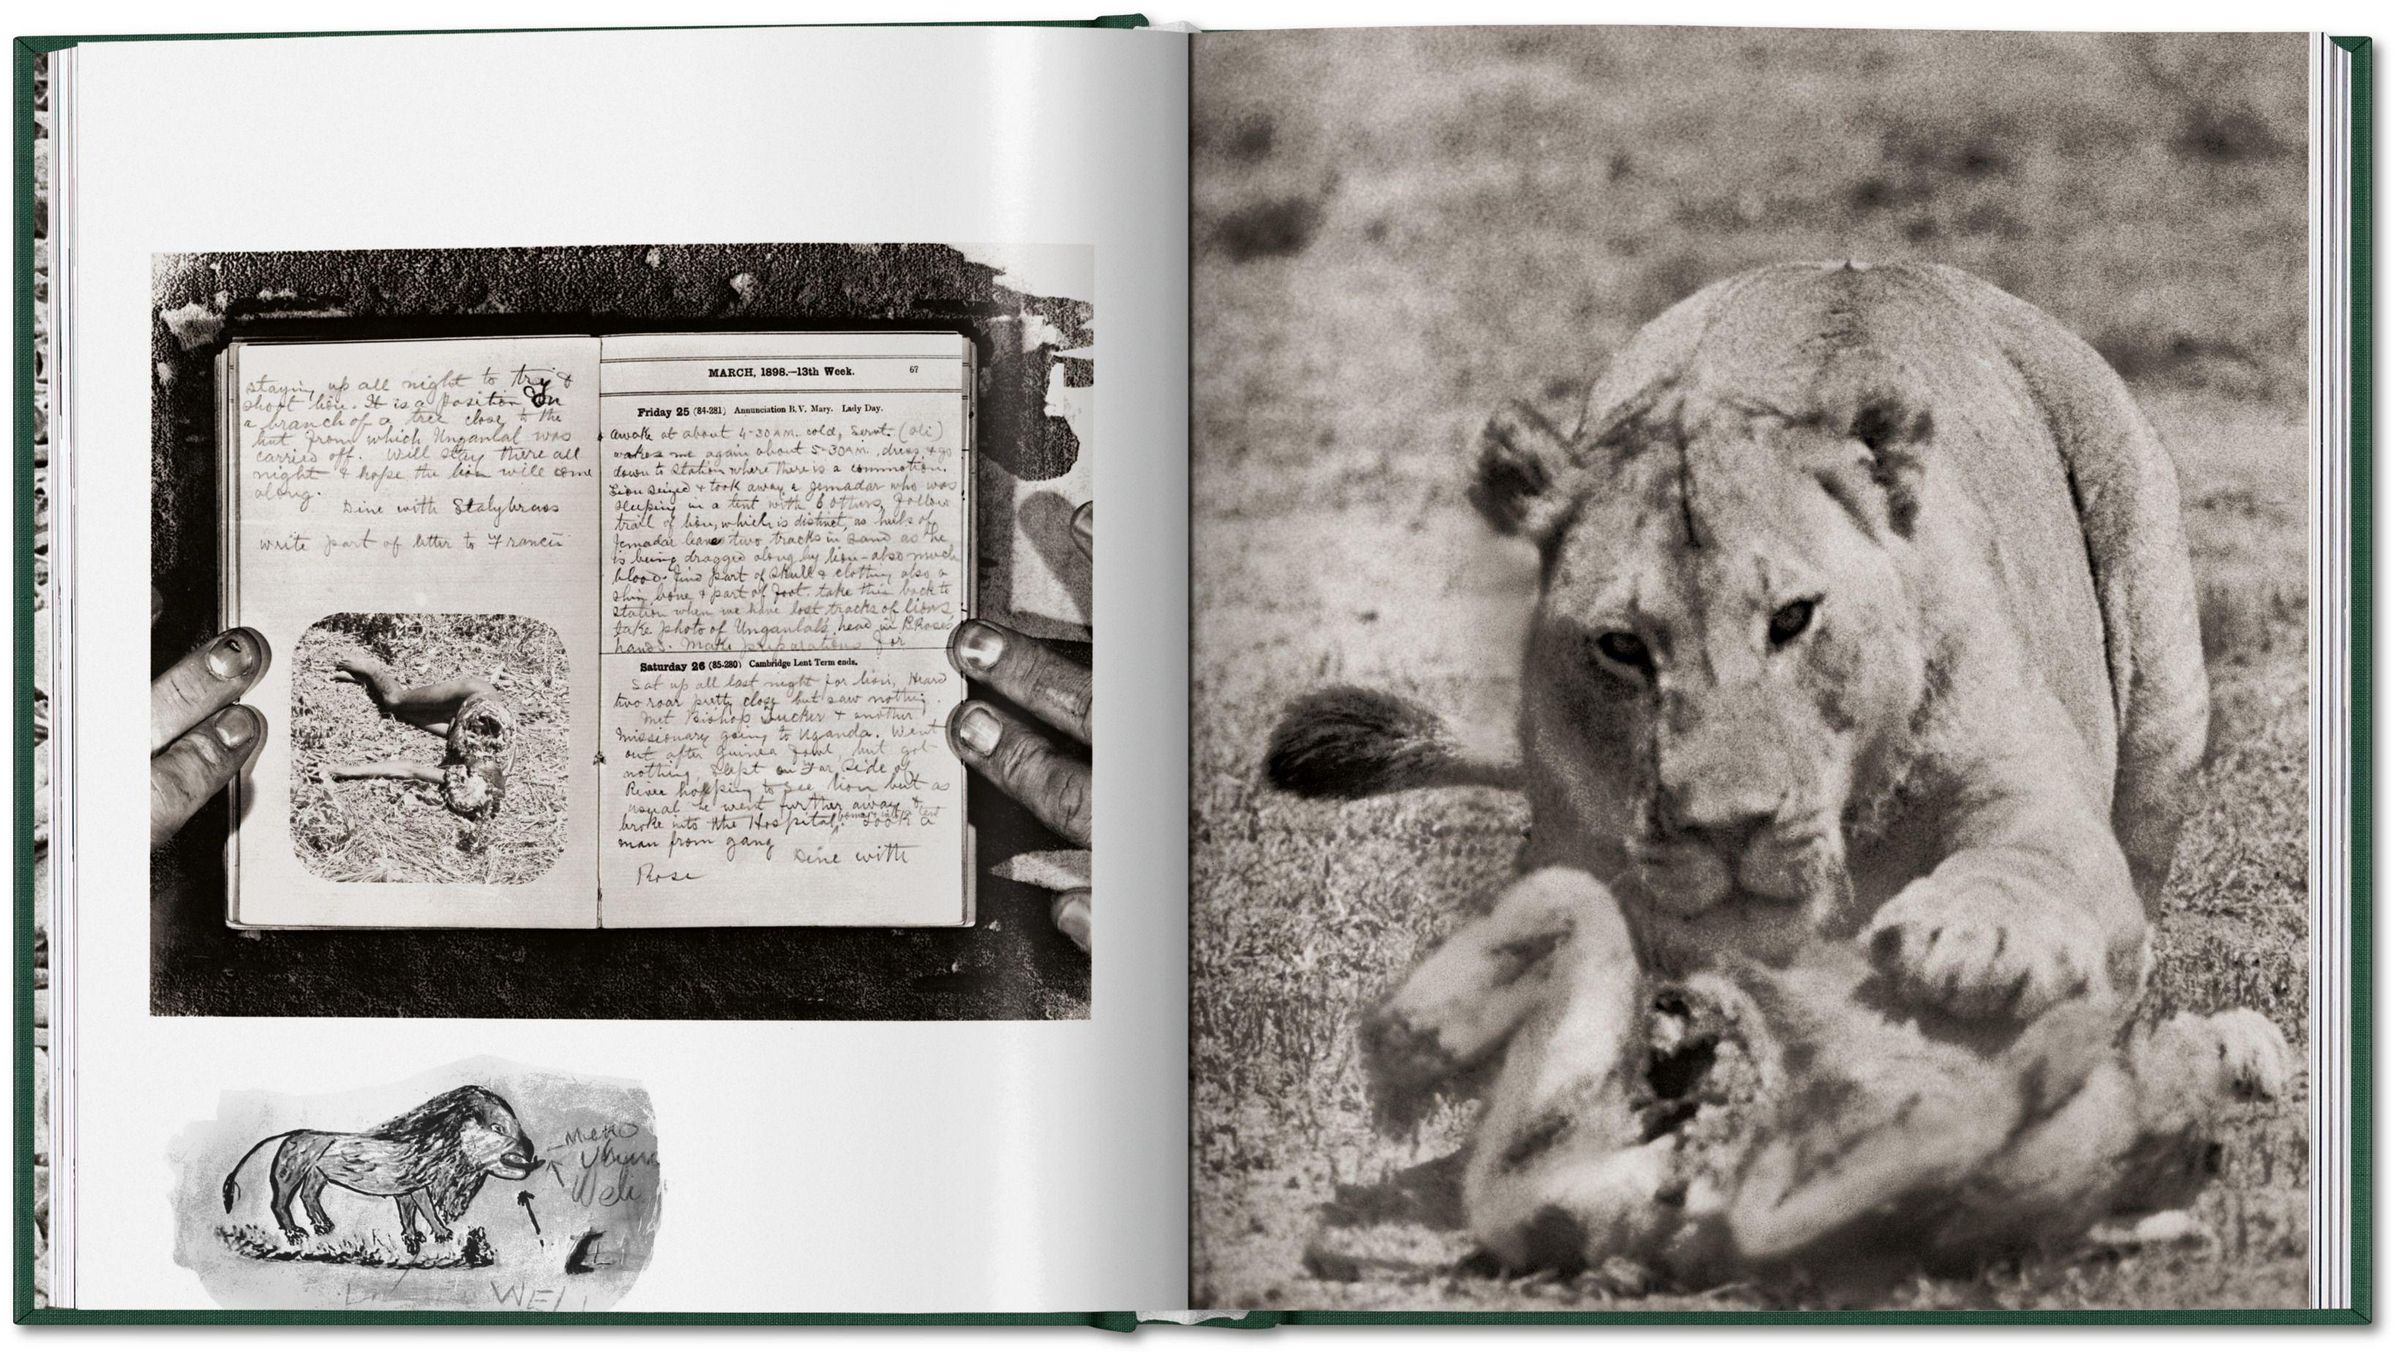 staying up all night to try &
shoot lion. It is a position on
a branch of a tree close to the
hut from which Unganlal was
carried off. Will stay there all
night & hope the lion will come
along.
Dine with Stalybrass
write part of letter to Francis
MARCH, 1898.—13th Week. 67
Friday 25 (84-281) Annunciation B.V. Mary. Lady Day.
awake at about 4-30 AM. cold, Servt. (Ali)
wakes me again about 5-30 AM., dress & go
down to Station where there is a commotion.
Lion seized & took away a Jemadar who was
sleeping in a tent with 6 others, Follow
trail of lion, which is distinct, as heels of
Jemadar leave two tracks in sand as he
is being dragged along by lion – also much
blood. find part of skull & clothing also a
shin bone & part of foot. take this back to
station when we have lost tracks of lions
take photo of Unganlal's head in R. Rose's
hands. Make preparations for
Saturday 26 (85-280) Cambridge Lent Term ends.
Sat up all last night for lion, Heard
two roar pretty close but saw nothing.
Met Bishop Tucker & another
missionary going to Uganda. Went
out after guinea fowl but got
nothing, slept on far side of
River hopping to see lion but as
usual he went further away &
broke into the Hospital. Took a
man from gang Dine with
Rose
WEL